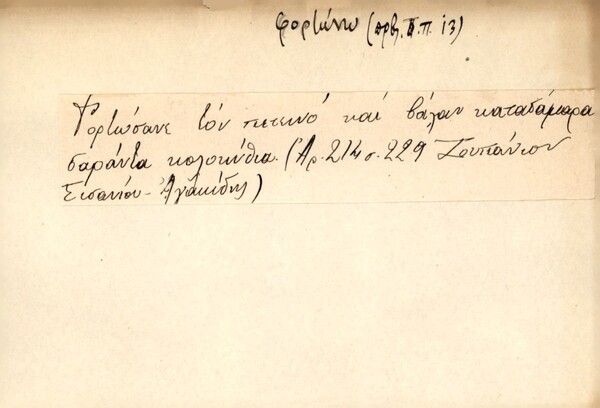 φορτώνω (πρβ. π. 13)
Φορτώσανε τὸν πετεινό καί βάλαν κατασάμαρα
σαράντα κολοκύθια. (Ἀρ. 214 σ. 229 Ζουπάνιον
Σισανίου - Ἀγακίδης)